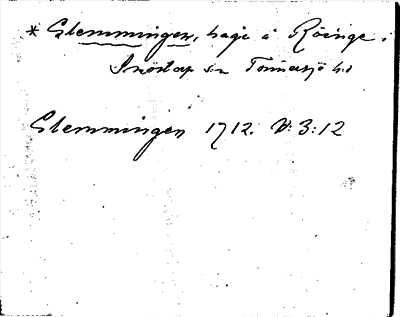 * Slemmingen, hage å Röinge,
Snöstorp sn Tönnersjö hd
Slemmingen 1712. V: 3: 12